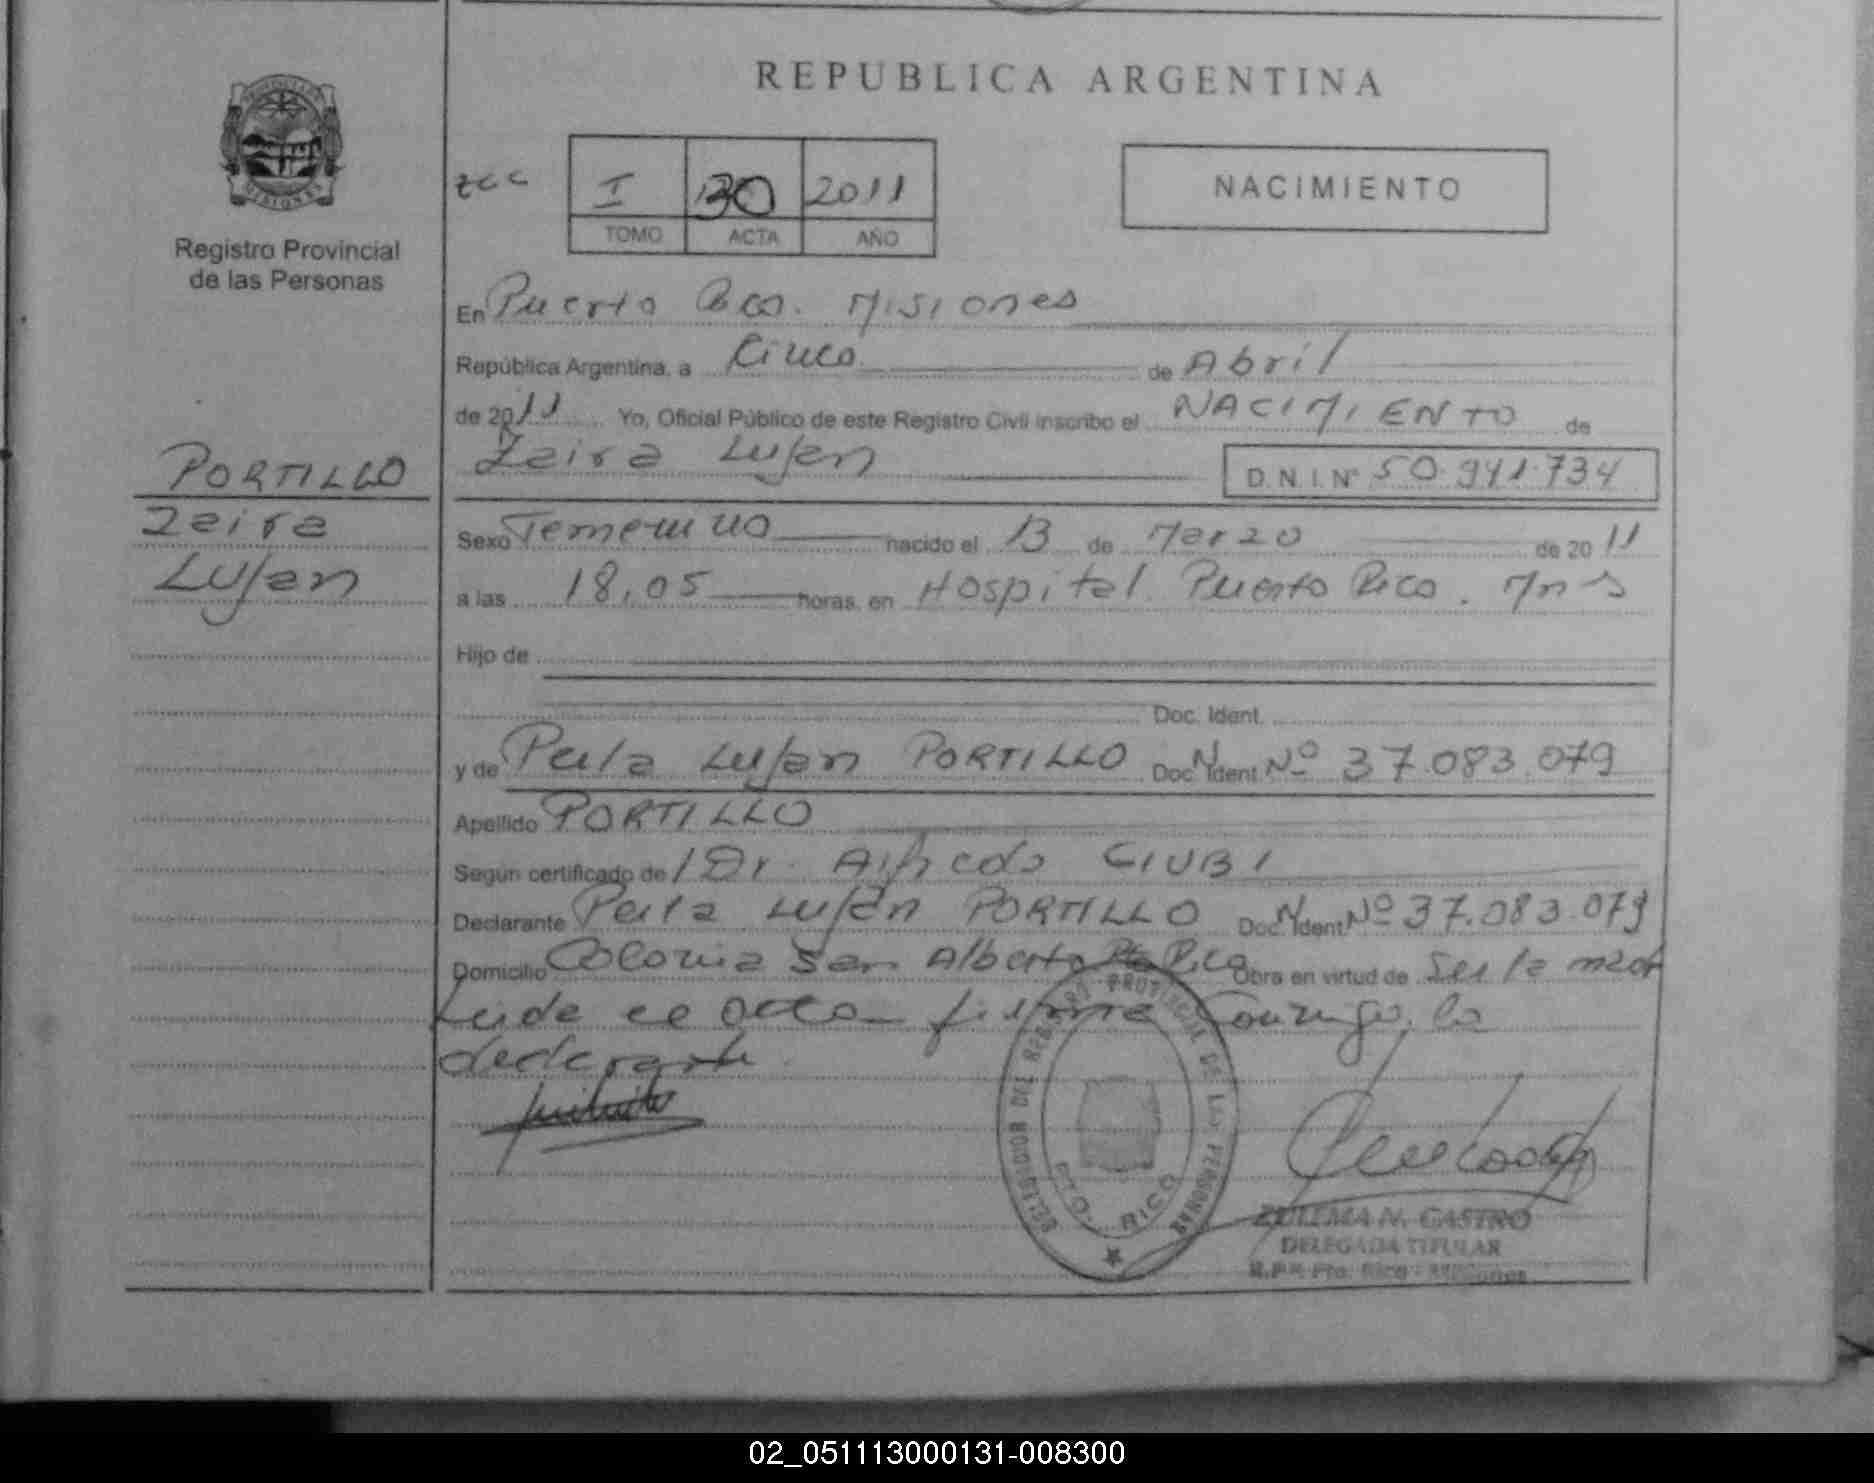 REPUBLICA ARGENTINA
Registro Provincial
de las Personas
I 130 2011
TOMO ACTA AÑO
NACIMIENTO
En Puerto Rico. Misiones
República Argentina, a Cinco de Abril
de 2011 Yo, Oficial Público de este Registro Civil inscribo el NACIMIENTO de
Zaira Lujan D.N.I.Nº 50.941.734
PORTILLO
Zaira
Lujan
Sexo Femenino nacido el 13 de Marzo de 2011
a las 18,05 horas. en Hospital Puerto Rico. Mns
Hijo de
Doc. Ident.
y de Perla Lujan PORTILLO Doc. Ident. Nº 37.083.079
Apellido PORTILLO
Según certificado de / Dr. Alfredo CIUBI
Declarante Perla Luján PORTILLO Doc. Ident. Nº 37.083.079
Domicilio Colonia San Alberto Pto Rico Obra en virtud de Ser la madre
Leida el acta firma Conmigo, la
declarante.
DELEGACION DEL REGISTRO PROVINCIAL DE LAS PERSONAS
PTO. RICO
ZULEMA N. CASTRO
DELEGADA TITULAR
R.P.P. Pto. Rico - Misiones
02_051113000131-008300